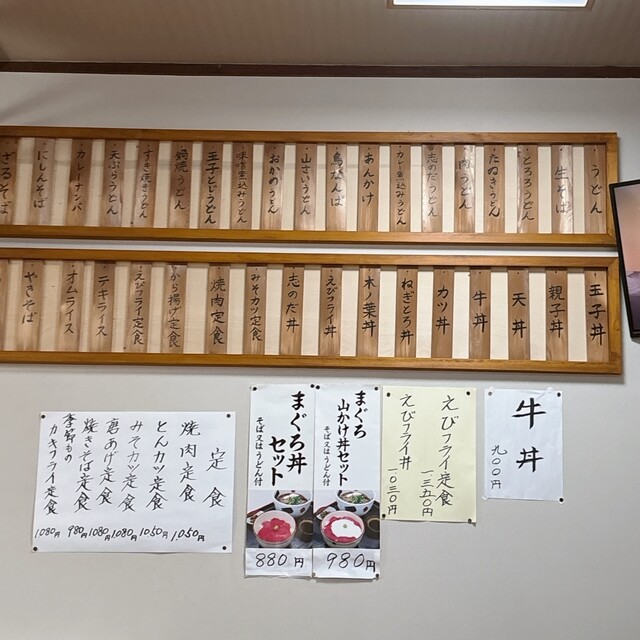 うどん
生そば
とろろうどん
たぬきうどん
肉うどん
志のだうどん
カレー煮込みうどん
あんかけ
鳥なんば
山さいうどん
おかめうどん
味噌煮込みうどん
玉子とじうどん
鍋焼うどん
すき焼きうどん
天ぷらうどん
カレーナンバ
にしんそば
ざるそば
玉子丼
親子丼
天丼
牛丼
カツ丼
ねぎとろ丼
木ノ葉丼
えびフライ丼
志のだ丼
みそカツ定食
焼肉定食
から揚げ定食
えびフライ定食
テキライス
オムライス
やきそば
牛丼
九〇〇円
えびフライ定食
一三五〇円
えびフライ丼
一〇三〇円
まぐろ
山かけ丼セット
そば又はうどん付
980円
まぐろ丼
セット
そば又はうどん付
880円
定食
焼肉定食 1050円
とんカツ定食 1050円
みそカツ定食 1080円
唐あげ定食 1080円
焼きそば定食 980円
季節もの
カキフライ定食 1080円